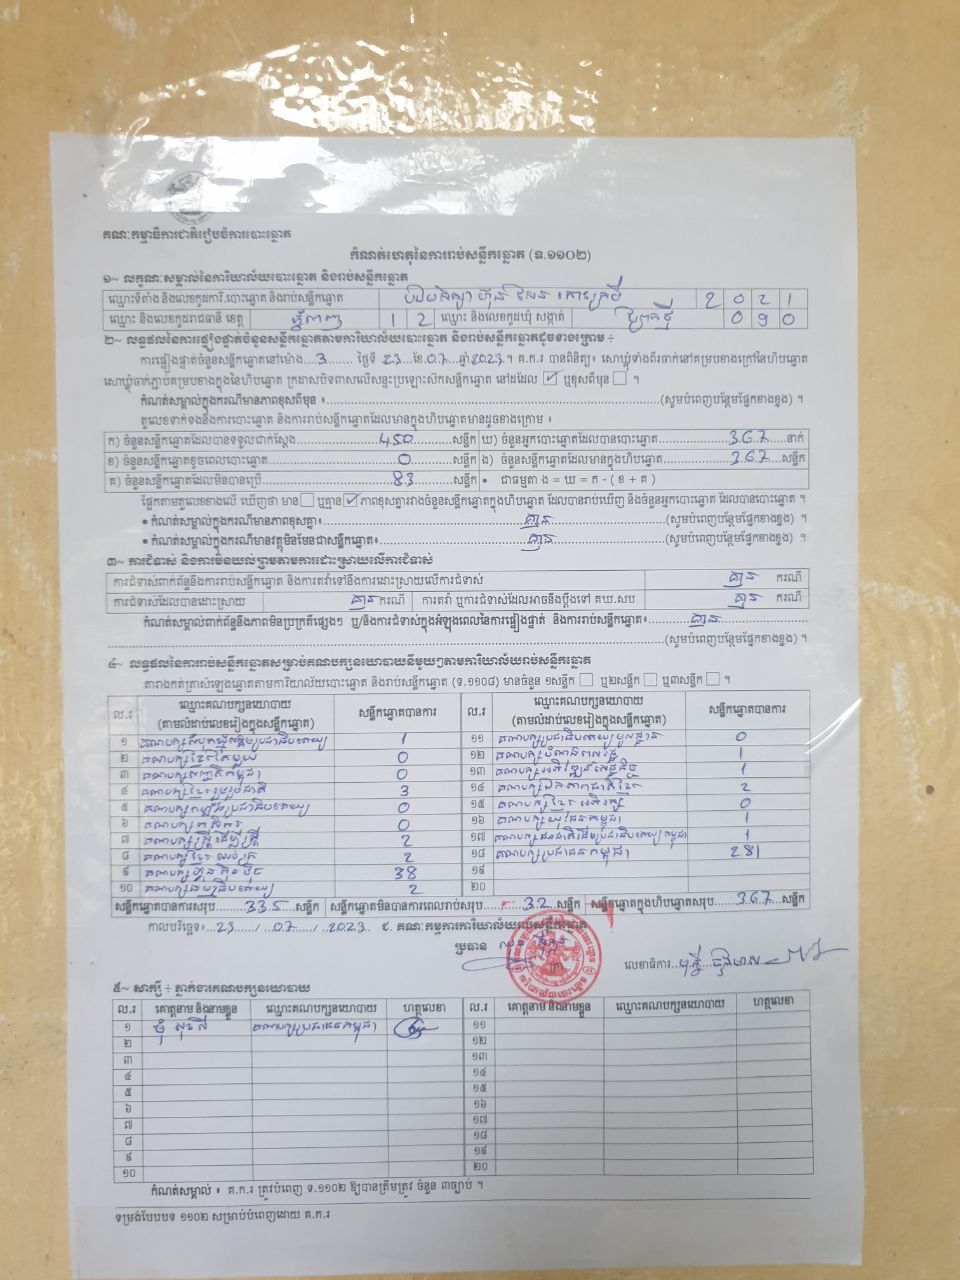 គណៈកម្មាធិការជាតិរៀបចំការបោះឆ្នោត
កំណត់ហេតុនៃការរាប់សន្លឹកឆ្នោត (ទ.១១០២)
១~ លក្ខណៈសម្គាល់នៃការិយាល័យបោះឆ្នោត និងរាប់សន្លឹកឆ្នោត
ឈ្មោះទីតាំង និងលេខកូដការិ.បោះឆ្នោត និងរាប់សន្លឹកឆ្នោត 2 0 2 1
ឈ្មោះ និងលេខកូដរាជធានី ខេត្ត ភ្នំពេញ 1 2 ឈ្មោះ និងលេខកូដឃុំ សង្កាត់ 0 9 0
២~ លទ្ធផលនៃការផ្ទៀងផ្ទាត់ចំនួនសន្លឹកឆ្នោតតាមការិយាល័យបោះឆ្នោត និងរាប់សន្លឹកឆ្នោតដូចខាងក្រោម ÷
ការផ្ទៀងផ្ទាត់ចំនួនសន្លឹកឆ្នោតនៅម៉ោង...3....... ថ្ងៃទី 23 ខែ.07...ឆ្នាំ2023.។ គ.ក.រ បានពិនិត្យ៖ សោឃ្លុំទាំងពីរចាក់នៅគម្របខាងក្រៅនៃហិបឆ្នោត
សោឃ្លុំចាក់ភ្ជាប់គម្របខាងក្នុងនៃហិបឆ្នោត ក្រដាសបិទពាសលើសន្ទះប្រឡោះស៊កសន្លឹកឆ្នោត នៅដដែល ☑ ឬខុសពីមុន ☐ ។
កំណត់សម្គាល់ក្នុងករណីមានភាពខុសពីមុន ៖..........(សូមបំពេញបន្ថែមផ្នែកខាងខ្នង) ។
តួលេខទាក់ទងនឹងការបោះឆ្នោត និងការរាប់សន្លឹកឆ្នោតដែលមានក្នុងហិបឆ្នោតមានដូចខាងក្រោម ៖
ក) ចំនួនសន្លឹកឆ្នោតដែលបានទទួលជាក់ស្តែង..........450..........សន្លឹក ឃ) ចំនួនអ្នកបោះឆ្នោតដែលបានបោះឆ្នោត..........367.....នាក់
ខ) ចំនួនសន្លឹកឆ្នោតខូចពេលបោះឆ្នោត..........0..........សន្លឹក ង) ចំនួនសន្លឹកឆ្នោតដែលមានក្នុងហិបឆ្នោត..........367....សន្លឹក
គ) ចំនួនសន្លឹកឆ្នោតដែលមិនបានប្រើ..........83..........សន្លឹក • ជាធម្មតា ង = ឃ = ក - ( ខ + គ )
ផ្អែកតាមតួលេខខាងលើ ឃើញថា មាន ☐ ឬគ្មាន ☑ ភាពខុសគ្នារវាងចំនួនសន្លឹកឆ្នោតក្នុងហិបឆ្នោត ដែលបានរាប់ឃើញ និងចំនួនអ្នកបោះឆ្នោត ដែលបានបោះឆ្នោត ។
• កំណត់សម្គាល់ក្នុងករណីមានភាពខុសគ្នា៖..........គ្មាន..........(សូមបំពេញបន្ថែមផ្នែកខាងខ្នង) ។
• កំណត់សម្គាល់ក្នុងករណីមានវត្ថុមិនមែនជាសន្លឹកឆ្នោត៖..........គ្មាន..........(សូមបំពេញបន្ថែមផ្នែកខាងខ្នង) ។
៣~ ការជំទាស់ និងការមិនយល់ព្រមតាមការដោះស្រាយលើការជំទាស់
ការជំទាស់ពាក់ព័ន្ធនឹងការរាប់សន្លឹកឆ្នោត និងការតវ៉ាទៅនឹងការដោះស្រាយលើការជំទាស់ គ្មាន ករណី
ការជំទាស់ដែលបានដោះស្រាយ គ្មាន ករណី ការតវ៉ា ឬការជំទាស់ដែលអាចនឹងប្តឹងទៅ គឃ.សប គ្មាន ករណី
កំណត់សម្គាល់ពាក់ព័ន្ធនឹងភាពមិនប្រក្រតីផ្សេងៗ ឬ/និងការជំទាស់ក្នុងអំឡុងពេលនៃការផ្ទៀងផ្ទាត់ និងការរាប់សន្លឹកឆ្នោត៖..........គ្មាន..........
..........(សូមបំពេញបន្ថែមផ្នែកខាងខ្នង) ។
៤~ លទ្ធផលនៃការរាប់សន្លឹកឆ្នោតសម្រាប់គណបក្សនយោបាយនីមួយៗតាមការិយាល័យរាប់សន្លឹកឆ្នោត
តារាងកត់ត្រាសំឡេងឆ្នោតតាមការិយាល័យបោះឆ្នោត និងរាប់សន្លឹកឆ្នោត (ទ.១១០៨) មានចំនួន ១សន្លឹក ☐ ឬ២សន្លឹក ☐ ឬ៣សន្លឹក ☐ ។
ល.រ ឈ្មោះគណបក្សនយោបាយ (តាមលំដាប់លេខរៀងក្នុងសន្លឹកឆ្នោត) សន្លឹកឆ្នោតបានការ ល.រ ឈ្មោះគណបក្សនយោបាយ (តាមលំដាប់លេខរៀងក្នុងសន្លឹកឆ្នោត) សន្លឹកឆ្នោតបានការ
១ គណបក្សសំបុកឃ្មុំសង្គមប្រជាធិបតេយ្យ 1 ១១ គណបក្សប្រជាធិបតេយ្យមូលដ្ឋាន 0
២ គណបក្សខ្មែរតែមួយ 0 ១២ 1
៣ គណបក្សសញ្ជាតិកម្ពុជា 0 ១៣ គណបក្សខ្មែរអភិវឌ្ឍន៍សេដ្ឋកិច្ច 1
៤ គណបក្សខ្មែររួបរួមជាតិ 3 ១៤ គណបក្សឯកភាពជាតិខ្មែរ 2
៥ គណបក្សកម្លាំងប្រជាធិបតេយ្យ 0 ១៥ គណបក្សខ្មែរអភិរក្ស 0
៦ គណបក្សកសិករ 0 ១៦ គណបក្សយុវជនកម្ពុជា 1
៧ គណបក្សស្ត្រីដើម្បីស្ត្រី 2 ១៧ គណបក្សជនជាតិដើមប្រជាធិបតេយ្យកម្ពុជា 1
៨ គណបក្សខ្មែរឈប់ក្រ 2 ១៨ គណបក្សប្រជាជនកម្ពុជា 281
៩ គណបក្សហ្វ៊ុនស៊ិនប៉ិច 38 ១៩
១០ គណបក្សធម្មាធិបតេយ្យ 2 ២០
សន្លឹកឆ្នោតបានការសរុប........335..សន្លឹក សន្លឹកឆ្នោតមិនបានការពេលរាប់សរុប.....32..សន្លឹក សន្លឹកឆ្នោតក្នុងហិបឆ្នោតសរុប.....367...សន្លឹក
កាលបរិច្ឆេទ៖...23.... / ..07.... / ..2023.. ជ. គណៈកម្មការការិយាល័យរាប់សន្លឹកឆ្នោត
ប្រធាន
លេខាធិការ
៥~ សាក្សី ÷ ភ្នាក់ងារគណបក្សនយោបាយ
ល.រ គោត្តនាម និងនាមខ្លួន ឈ្មោះគណបក្សនយោបាយ ហត្ថលេខា ល.រ គោត្តនាម និងនាមខ្លួន ឈ្មោះគណបក្សនយោបាយ ហត្ថលេខា
១ គណបក្សប្រជាជនកម្ពុជា ១១
២ ១២
៣ ១៣
៤ ១៤
៥ ១៥
៦ ១៦
៧ ១៧
៨ ១៨
៩ ១៩
១០ ២០
កំណត់សម្គាល់ ៖ គ.ក.រ ត្រូវបំពេញ ទ.១១០២ ឱ្យបានត្រឹមត្រូវ ចំនួន ៣ច្បាប់ ។
ទម្រង់បែបបទ ១១០២ សម្រាប់បំពេញដោយ គ.ក.រ